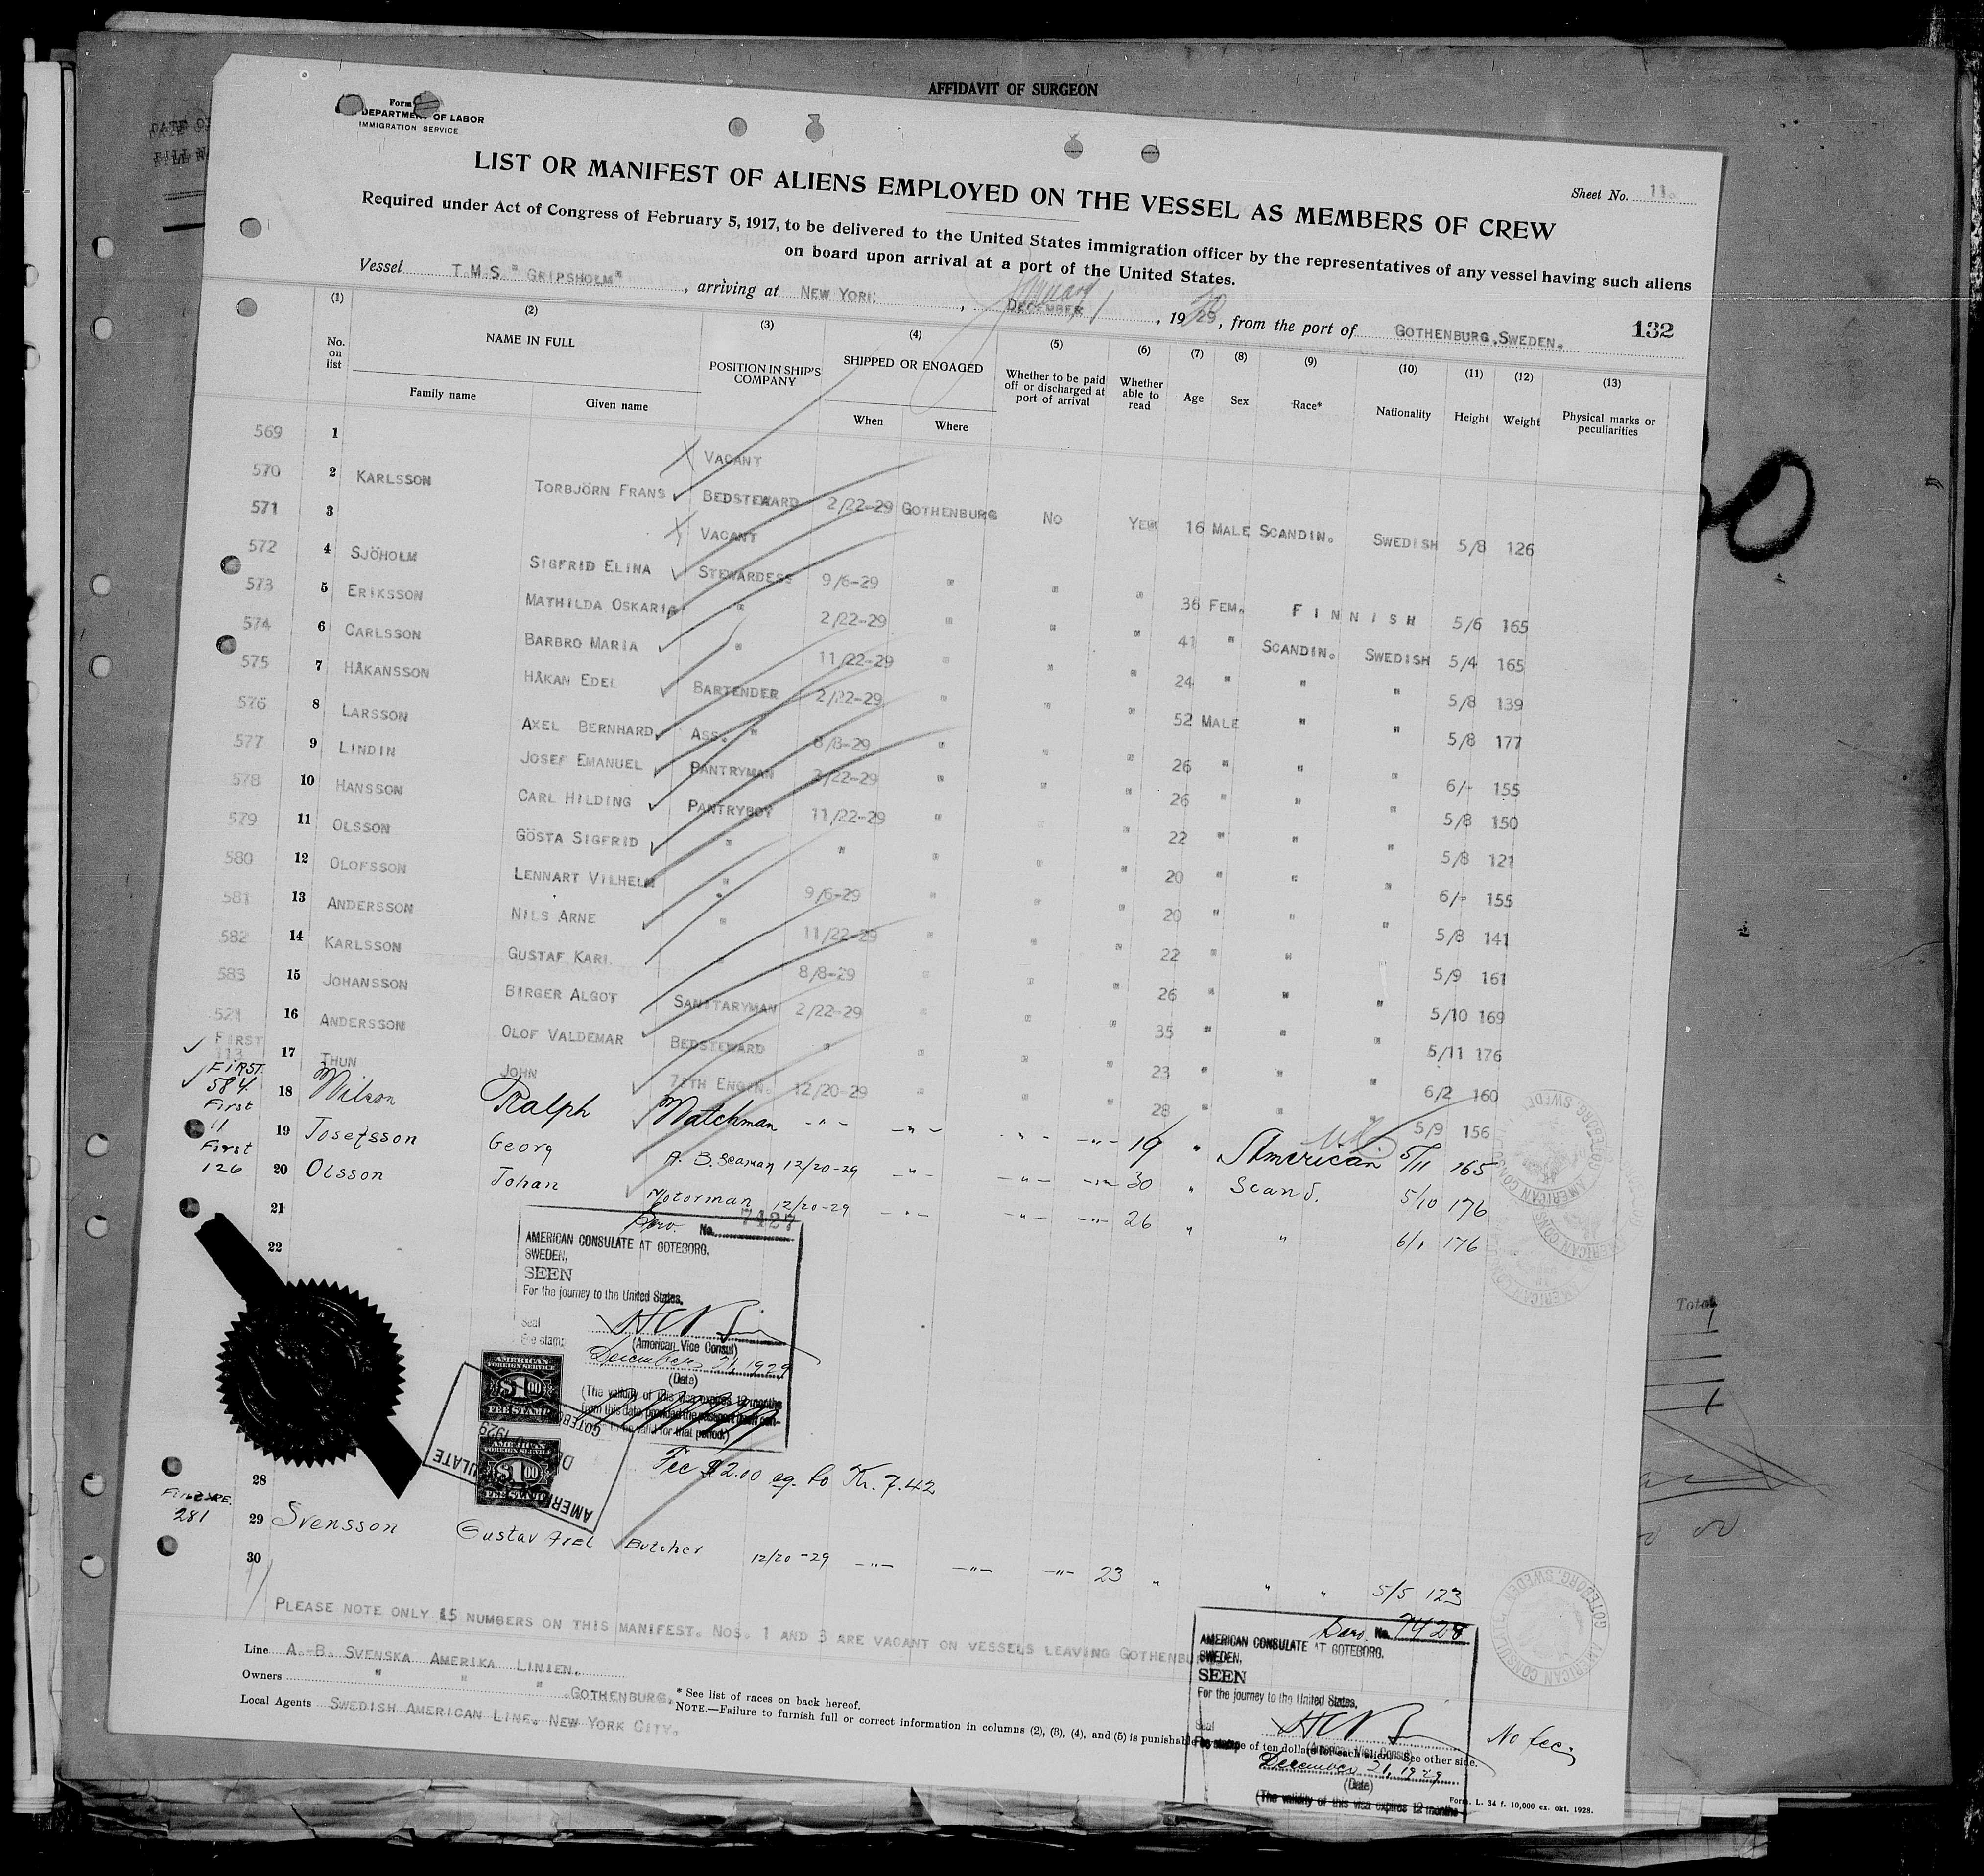 AFFIDAVIT OF SURGEON
Form
DEPARTMENT OF LABOR
IMMIGRATION SERVICE
Sheet No. 11.
LIST OR MANIFEST OF ALIENS EMPLOYED ON THE VESSEL AS MEMBERS OF CREW
Required under Act of Congress of February 5, 1917, to be delivered to the United States immigration officer by the representatives of any vessel having such aliens
on board upon arrival at a port of the United States.
Vessel T.M.S. "GRIPSHOLM", arriving at NEW YORK, January DECEMBER 1, 1929 30, from the port of GOTHENBURG, SWEDEN. 132
(1) (2) (3) (4) (5) (6) (7) (8) (9) (10) (11) (12) (13)
No. on list NAME IN FULL POSITION IN SHIP'S COMPANY SHIPPED OR ENGAGED Whether to be paid off or discharged at port of arrival Whether able to read Age Sex Race* Nationality Height Weight Physical marks or peculiarities
Family name Given name When Where
569 1 VACANT
570 2 KARLSSON TORBJÖRN FRANS BEDSTEWARD 2/22-29 GOTHENBURG No Yes 16 MALE SCANDIN. SWEDISH 5/8 126
571 3 VACANT
572 4 SJÖHOLM SIGFRID ELINA STEWARDESS 9/6-29 " " " 36 FEM. FINNISH 5/6 165
573 5 ERIKSSON MATHILDA OSKARIA " 2/22-29 " " " 41 " SCANDIN. SWEDISH 5/4 165
574 6 CARLSSON BARBRO MARIA " 11/22-29 " " " 24 " " " 5/8 139
575 7 HÅKANSSON HÅKAN EDEL BARTENDER 2/22-29 " " " 52 MALE " " 5/8 177
576 8 LARSSON AXEL BERNHARD ASS. " 8/8-29 " " " 26 " " " 6/- 155
577 9 LINDIN JOSEF EMANUEL PANTRYMAN 2/22-29 " " " 26 " " " 5/8 150
578 10 HANSSON CARL HILDING PANTRYBOY 11/22-29 " " " 22 " " " 5/8 121
579 11 OLSSON GÖSTA SIGFRID " " " " " 20 " " " 6/- 155
580 12 OLOFSSON LENNART VILHELM " 9/6-29 " " " 20 " " " 5/8 141
581 13 ANDERSSON NILS ARNE " 11/22-29 " " " 22 " " " 5/9 161
582 14 KARLSSON GUSTAF KARL " 8/8-29 " " " 26 " " " 5/10 169
583 15 JOHANSSON BIRGER ALGOT SANITARYMAN 2/22-29 " " " 35 " " " 5/11 176
521 16 ANDERSSON OLOF VALDEMAR BEDSTEWARD " " " " 23 " " " 6/2 160
FIRST
113 17 THUN JOHN 7:TH ENGIN. 12/20-29 " " " 28 " " " 5/9 156
FIRST.
584. 18 Wilson Ralph Watchman -"- -"- -"- -"- 19 " American 5/11 165
First
11 19 Josefsson Georg A. B. Seaman 12/20-29 -"- -"- -"- 30 " Scand. 5/10 176
First
126 20 Olsson Johan Motorman 12/20-29 -"- -"- -"- 26 " " 6/1 176
21
22
No. 7427
AMERICAN CONSULATE AT GOTEBORG,
SWEDEN,
SEEN
For the journey to the United States,
Seal
Fee stamp
(American Vice Consul)
December 21, 1929
(Date)
(The validity of this visa expires 12 months
from this date, provided the passport
valid for that period.)
AMERICAN
FOREIGN SERVICE
$1.00
FEE STAMP
AMERICAN
FOREIGN SERVICE
$1.00
FEE STAMP
Fee $2.00 eq. to Kr. 7.42
28
281 29 Svensson Gustav Axel Butcher 12/20-29 -"- -"- -"- 23 " " " 5/5 123
30
PLEASE NOTE ONLY 15 NUMBERS ON THIS MANIFEST. NOS. 1 AND 3 ARE VACANT ON VESSELS LEAVING GOTHENBURG
Line A.-B. SVENSKA AMERIKA LINIEN.
Owners " " " GOTHENBURG.
Local Agents SWEDISH AMERICAN LINE. NEW YORK CITY.
* See list of races on back hereof.
NOTE.—Failure to furnish full or correct information in columns (2), (3), (4), and (5) is punishable of ten dollars for each alien. See other side.
No. 7428
AMERICAN CONSULATE AT GOTEBORG,
SWEDEN,
SEEN
For the journey to the United States,
Seal
Fee stamp
(American Vice Consul)
December 21, 1929
(Date)
(The validity of this visa expires 12 months
No fee;
Form. L. 34 f. 10,000 ex. okt. 1928.
Total